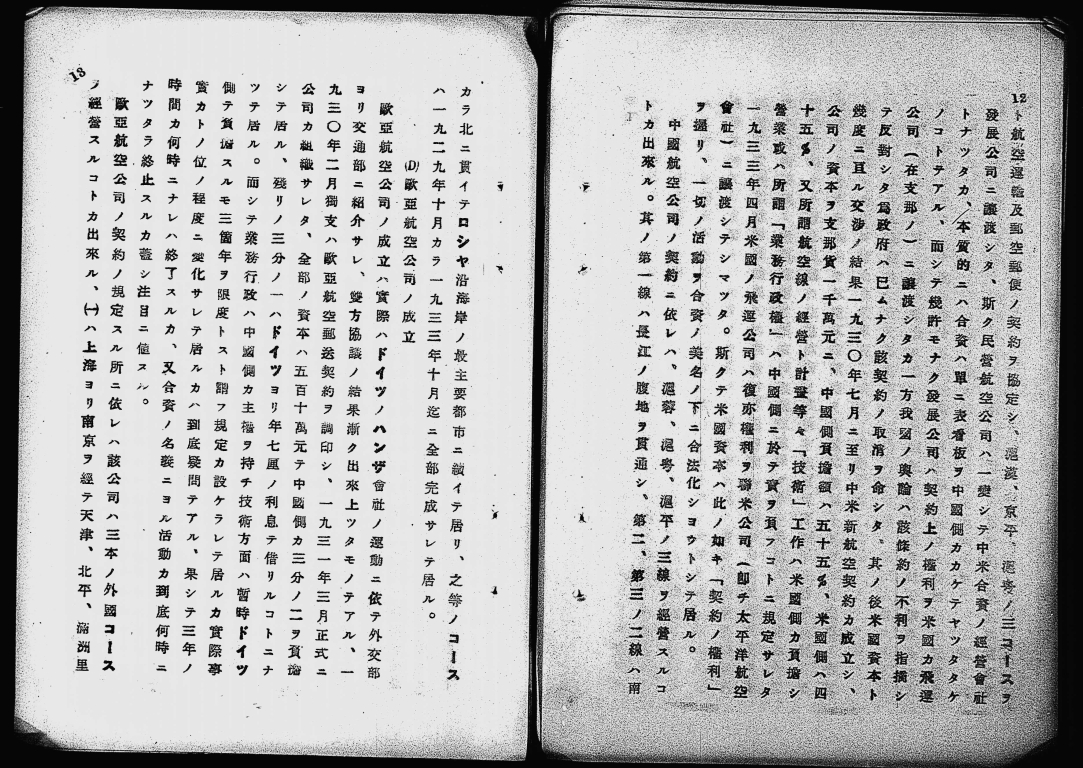 12
ト航空運輸及郵空郵便ノ契約ヲ協定シ、滬漢、京平、滬粤ノ三コースヲ
發展公司ニ讓渡シタ、斯ク民營航空公司ハ一變シテ中米合資ノ經營會社
トナツタカ、本質的ニハ合資ハ單ニ表看板ヲ中國側カカケテヤツタタケ
ノコトテアル、而シテ幾許モナク發展公司ハ契約上ノ權利ヲ米國カ飛運
公司(在支那ノ)ニ讓渡シタカ一方我國ノ輿論ハ該條約ノ不利ヲ指摘シ
テ反對シタ爲政府ハ已ムナク該契約ノ取消ヲ命シタ。其ノ後米國資本ト
幾度ニ亘ル交渉ノ結果一九三〇年七月ニ至リ中米新航空契約カ成立シ、
公司ノ資本ヲ支那貨一千萬元ニ、中國側負擔額ハ五十五%、米國側ハ四
十五%、又所謂航空線ノ經營ト計畫等々「技術」工作ハ米國側カ負擔シ
營業或ハ所謂「業務行政權」ハ中國側ニ於テ責ヲ負フコトニ規定サレタ
一九三三年四月米國ノ飛運公司ハ復亦權利ヲ聯米公司(卽チ太平洋航空
會社)ニ讓渡シテシマツタ。斯クテ米國資本ハ此ノ如キ「契約ノ權利」
ヲ握リ、一切ノ活動ヲ合資ノ美名ノ下ニ合法化シヨウトシテ居ル。
中國航空公司ノ契約ニ依レハ、滬蓉、滬粤、滬平ノ三線ヲ經營スルコ
トカ出來ル。其ノ第一線ハ長江ノ腹地ヲ貫通シ、第二、第三ノ二線ハ南
13
カラ北ニ貫イテロシヤ沿海岸ノ最主要都市ニ續イテ居リ、之等ノコース
ハ一九二九年十月カラ一九三三年十月迄ニ全部完成サレテ居ル。
(D)歐亞航空公司ノ成立
歐亞航空公司ノ成立ハ實際ハドイツノハンザ會社ノ運動ニ依テ外交部
ヨリ交通部ニ紹介サレ、雙方協議ノ結果漸ク出來上ツタモノテアル、一
九三〇年二月獨支ハ歐亞航空郵送契約ヲ調印シ、一九三一年三月正式ニ
公司カ組織サレタ、全部ノ資本ハ五百十萬元テ中國側カ三分ノ二ヲ負擔
シテ居ル、殘リノ三分ノ一ハドイツヨリ年七厘ノ利息テ借リルコトニナ
ツテ居ル。而シテ業務行政ハ中國側カ主權ヲ持チ技術方面ハ暫時ドイツ
側テ負擔スルモ三箇年ヲ限度トスト謂フ規定カ設ケラレテ居ルカ實際事
實カトノ位ノ程度ニ變化サレテ居ルカハ到底疑問テアル、果シテ三年ノ
時間カ何時ニナレハ終了スルカ、又合資ノ名義ニヨル活動カ到底何時ニ
ナツタラ終止スルカ蓋シ注目ニ値スル。
歐亞航空公司ノ契約ノ規定スル所ニ依レハ該公司ハ三本ノ外國コース
ヲ經營スルコトカ出來ル、(一)ハ上海ヨリ南京ヲ經テ天津、北平、滿洲里